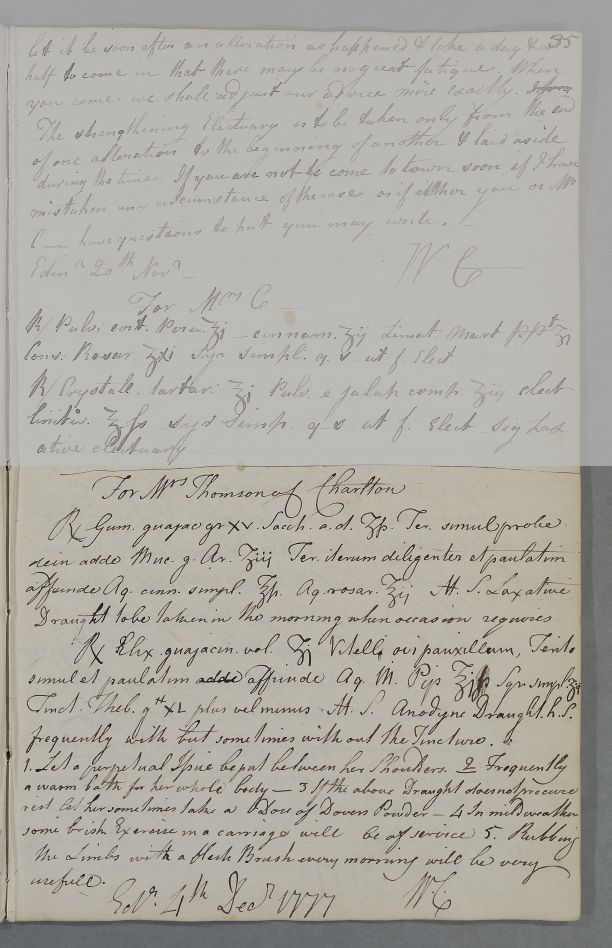 35
let it be soon after an alteration as happened & take a day & a
half to come in that there may be no great fatigue. When
you come we shall adjust our advice more exactly.
The strengthining Electuary is to be taken only from the end
of one alteration to the beginning of another & laid aside
during the time. If you are not to come to town soon if I have
mistaken any circumstance of the case or if either you or Mr
C— have questions to put you may write. —
Edinr 20th Novr — W C—
For Mrs C—
℞ Pulv: cort. Peru. ℥j cinnam. ʒij Limat. Mart. ppt
Cons. Rosar. Syr simpl. q. s. ut f. Elect.
℞ Crystall. tartar. ℥j Pulv. e jalap comp. ʒij elect
lenitiv. ℥ſs syr Simp. q s ut f. Elect Sig Lax
ative electuary
For Mrs Thomson of Charlton
℞ Gum. guajac gr xv. Sacch. a.d. Ter. simul probe
dein adde Muc. g. Ar. ʒiij Ter. iterum diligenter et paulatim
affunde Aq. cinn. simpl. Aq. rosar. ʒij M. S. Laxative
Draught to be taken in the morning when occasion requires
℞ Elix. guajacin. vol. ʒj Vitelli ovi pauxillum, Terito
simul et paulatim adde affunde Aq. M. Pip. Syr. simpl. ʒij
Tinct. Theb. gtt XL plus vel minus. M. S. Anodyne Draught h. S.
frequently with but sometimes without the Tincture.
1. Let a perpetual Issue be put between her Shoulders. 2 Frequently
a warm bath for her whole body — 3 If the above Draught does not procure
rest let her sometimes take a Dose of Dovers Powder — 4 In mild weather
some brisk Exercise in a carriage will be of service 5. Rubbing
the Limbs with a flesh Brush every morning will be very
usefull.
Edr. 4th Decr 1777 WC.